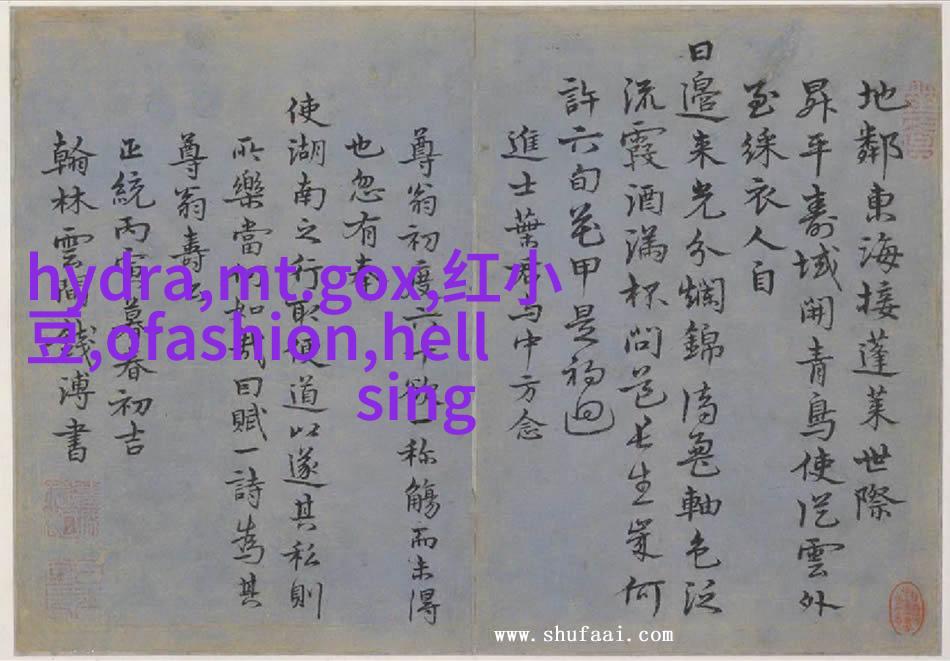 地鄰東海接蓬萊世際
昇平壽域開青鳥使從雲外
至綵衣人自
日邊来光分爛錦 軸色泛
流霞酒滿杯問道長生歲何
許六旬花甲是初迴
進士葉君与中方念
尊翁初度六十欲一称觴而未得
也忽有奉
使湖南之行取便道以遂其私則
所樂當何如哉因賦一詩為其
尊翁壽云
正統丙寅暮春初吉
翰林雲間錢溥書
hydra,mt.gox,红小
豆,ofashion,hell
sing
www.shufaai.com